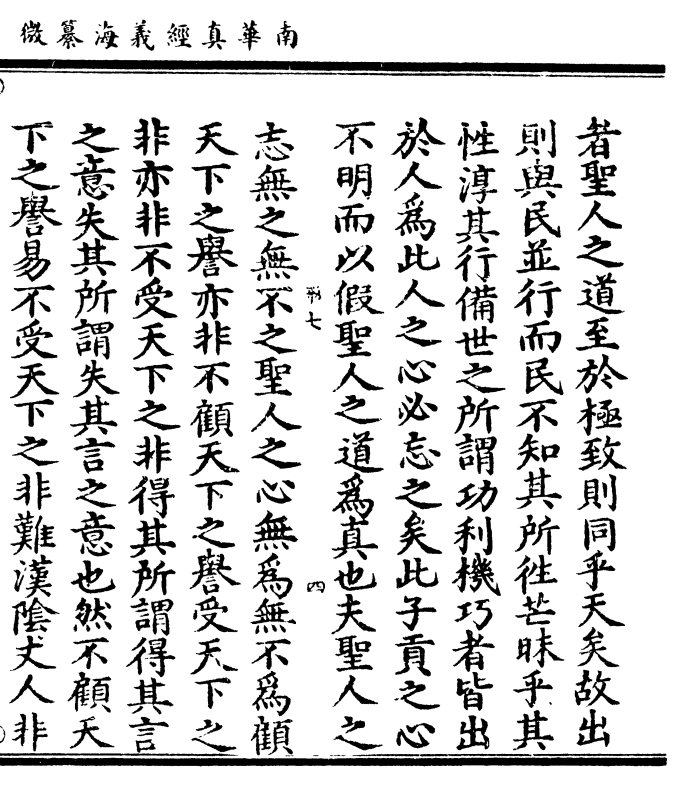 南華真經義海纂微
者聖人之道至於極致則同乎天矣故出
則與民並行而民不知其所徃芒昧乎其
性淳其行備世之所謂功利機巧者皆出
於人爲此人之心必忘之矣此子貢之心
不明而以假聖人之道爲真也夫聖人之
七
四
志無之無不之聖人之心無爲無不爲顧
天下之譽亦非不顧天下之譽受天下之
非亦非不受天下之非得其所謂得其言
之意失其所謂失其言之意也然不顧天
下之譽易不受天下之非難漢陰丈人非